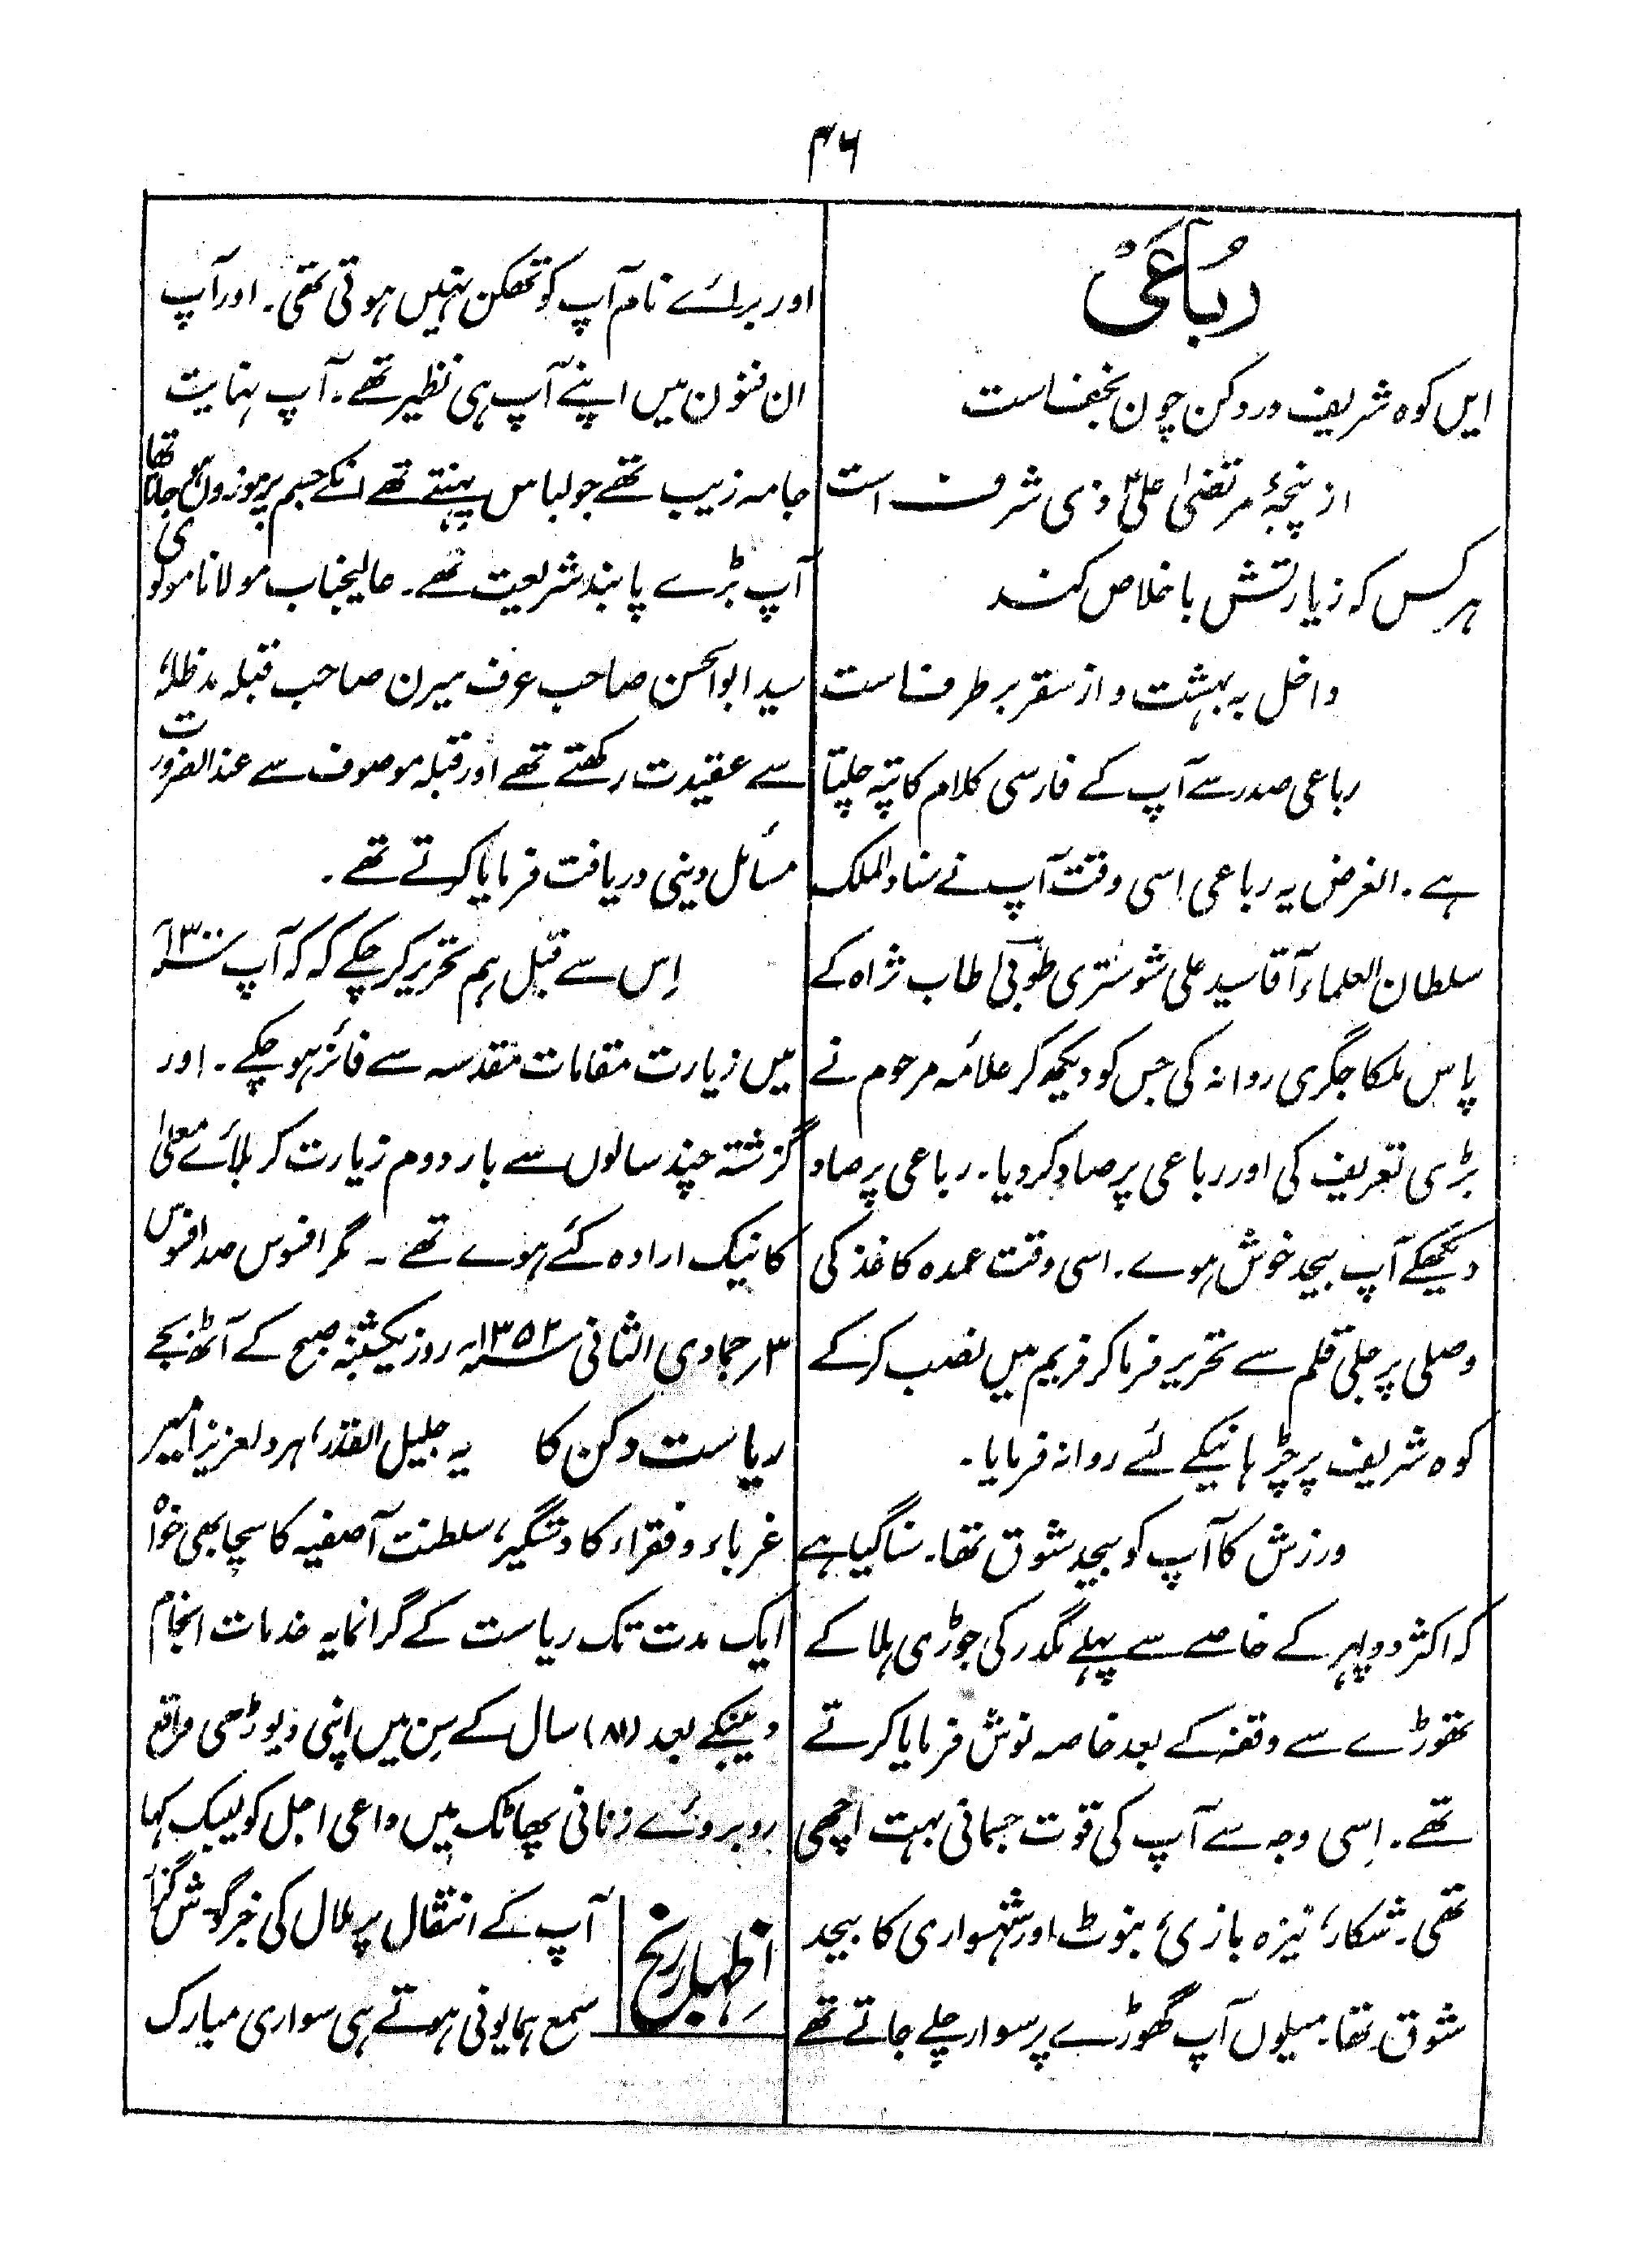 ۴۶
رُباعی
ایں کوہ شریف در دکن چون نجف است
از پنجۂ مرتضیٰ علیؑ ذی شرف است
ہر کس کہ زیارتش باخلاص کند
داخل بہ بہشت و از سقر بر طرف است
رباعی صدر سے آپ کے فارسی کلام کا پتہ چلتا
ہے۔ الغرض یہ رباعی اسی وقت آپ نے سناد الملک
سلطان العلماء آقا سید علی شوستری طوبیٰ طاب ثراہ کے
پاس ملکاجگری روانہ کی جس کو دیکھ کر علامہ مرحوم نے
بڑی تعریف کی اور رباعی پر صاد کردیا۔ رباعی پر صاد
دیکھکے آپ بیحد خوش ہوے۔ اسی وقت عمدہ کاغذ کی
وصلی پر جلی قلم سے تحریر فرما کر فریم میں نصب کرکے
کوہ شریف پر چڑہانیکے لئے روانہ فرمایا۔
ورزش کا آپ کو بیحد شوق تھا۔ سنا گیا ہے
کہ اکثر دوپہر کے خاصے سے پہلے مگدر کی جوڑی ہلا کے
تھوڑے سے وقفہ کے بعد خاصہ نوش فرمایا کرتے
تھے۔ اِسی وجہ سے آپ کی قوت جسمانی بہت اچھی
تھی۔ شکار، نیزہ بازی، بنوٹ اور شہسواری کا بیحد
شوق تھا۔ میلوں آپ گھوڑے پر سوار چلے جاتے تھے
اور برائے نام آپ کو تھکن نہیں ہوتی تھی۔ اور آپ
ان فنون میں اپنے آپ ہی نظیر تھے۔ آپ نہایت
جامہ زیب تھے جو لباس پہنتے تھے انکے جسم پر موزوں ہو جاتا تھا
آپ بڑے پابند شریعت تھے۔ عالیجناب مولانا مولوی
سید ابوالحسن صاحب عرف میرن صاحب قبلہ مدظلہٗ
سے عقیدت رکھتے تھے اور قبلہ موصوف سے عندالضرورت
مسائل دینی دریافت فرمایا کرتے تھے۔
اِس سے قبل ہم تحریر کرچکے کہ کہ آپ ۱۳۰۰ سنہ
میں زیارت مقامات مقدسہ سے فائز ہوچکے۔ اور
گزشتہ چند سالوں سے بار دوم زیارت کربلائے معلیٰ
کا نیک ارادہ کئے ہوے تھے۔ مگر افسوس صد افسوس
۳؍ جمادی الثانی ۱۳۵۲ سنہ روز یکشنبہ صبح کے آٹھ بجے
ریاست دکن کا یہ جلیل القدر، ہر دلعزیز امیر
غرباء و فقراء کا دستگیر، سلطنت آصفیہ کا سچا بہی خواہ
ایک مدت تک ریاست کے گرانمایہ خدمات انجام
دینیکے بعد (۸۱) سال کے سِن میں اپنی دیوڑھی واقع
روبروئے زنانی پھاٹک میں داعی اجل کو لبیک کہا
اِظہارِ رنج
آپ کے انتقال پر ملال کی خبر گوش گذار
سمع ہمایونی ہوتے ہی سواری مبارک